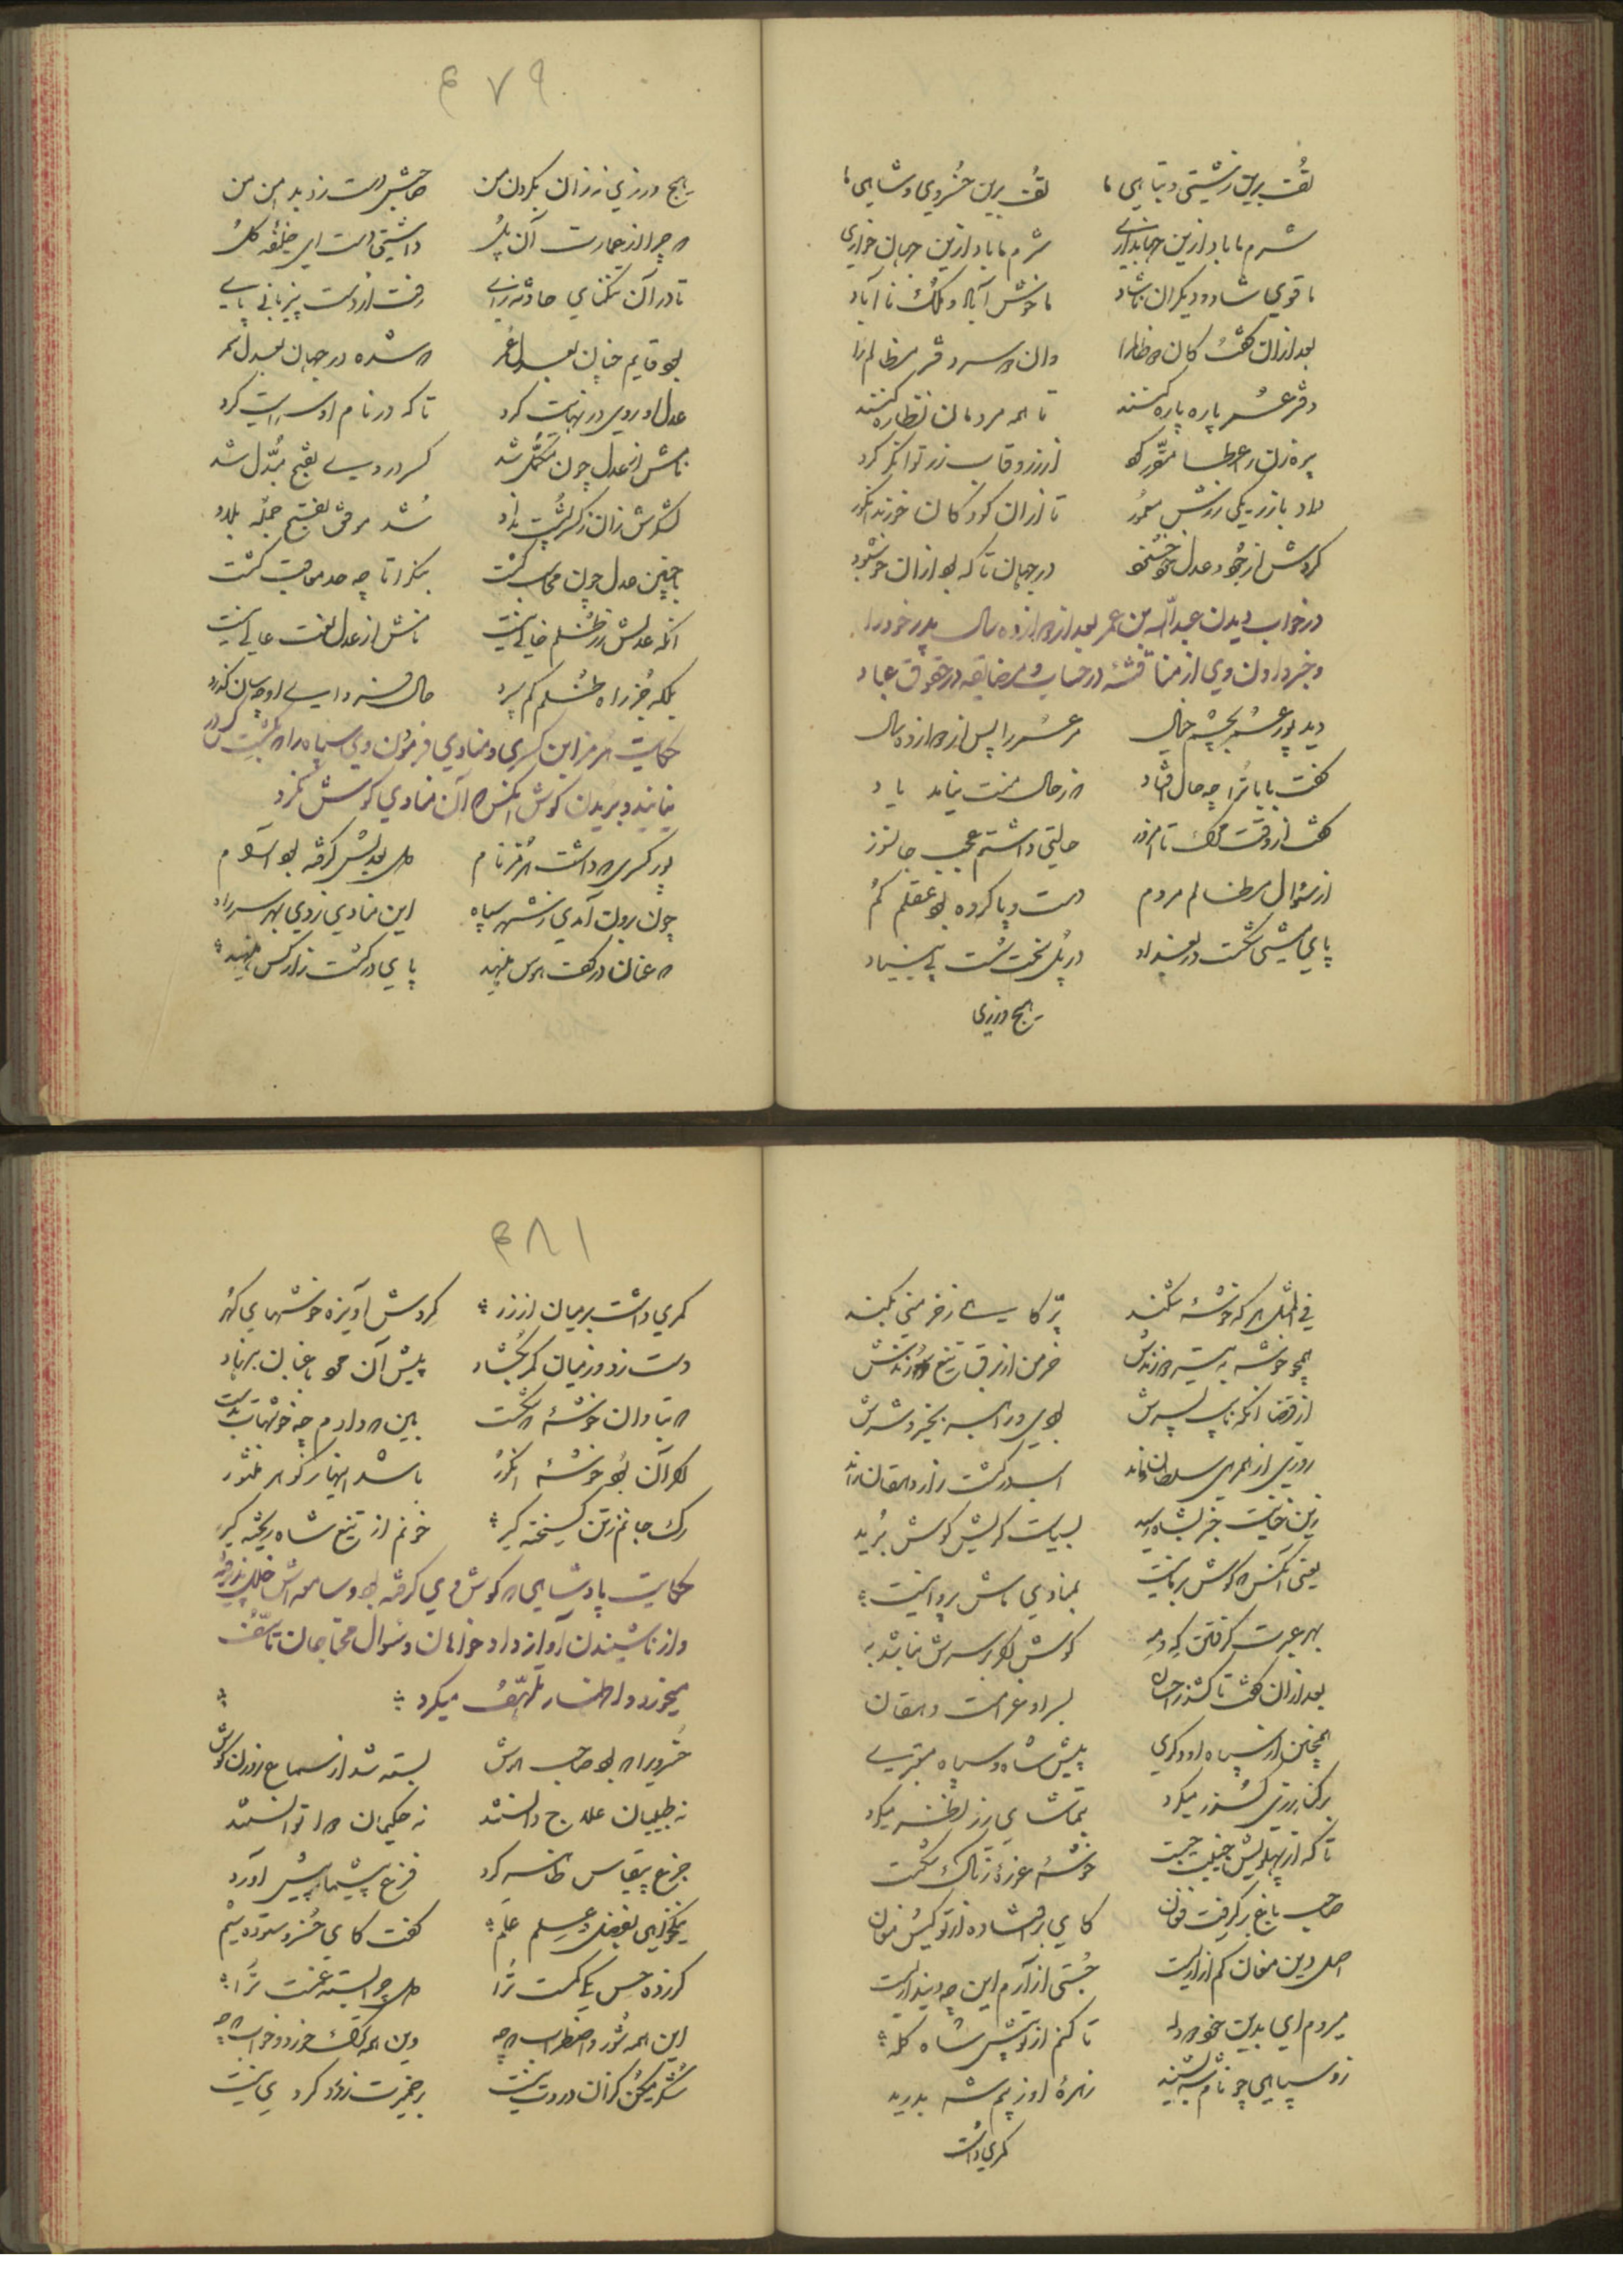 تف برین زشتی و تباهی ما تف برین خسروی و شاهی ما
شرم ما باد ازین جهانداری شرم ما باد ازین جهان خواری
ما قوی شاد و دیگران ناشاد ما خوش آباد و ملک ناآباد
بعد ازان گفت کان مظالم را وان سر دفتر مظالم را
دفتر عمر پاره پاره کنند تا همه مردمان نظاره کنند
پیره زن را عطا مقرر کرد از زر و قاب زر توانگر کرد
داد باز زر یکی رزش معمور تا ازان کودکان خورند انگور
کردش از جود و عدل خود خشنود در جهان تا که بود ازان خوش بود
در خواب دیدن عبدالله بن عمر بعد از دوازده سال پدر خود را
و خبر دادن وی از مناقشه در حساب و مضایقه در حقوق عباد
دید پور عمر بچشم خیال مر عمر را پس از دوازده سال
گفت بابا ترا چه حال افتاد که ز حال منت نیامد یاد
گفت از وقت مرگ تا امروز حالتی داشتم عجب جانسوز
از سؤال مظالم مردم دست و پا کرده بود عقلم گم
پای میشی شکست در بغداد در پل سخت سست بی بنیاد
هیچ ورزی
۴۷۹
هیچ ورزی نه زان بگردن من صاحبش دست زد بدامن من
که چرا از عمارت آن پل داشتی دست ای خلیفه کل
تا در آن تنگنای حادثه زای رفت از دست بیزبانی پای
بود قایم چنان بعدل عمر که شده در جهان بعدل سمر
عدل او روی در نهایت کرد تا که در نام او سرایت کرد
نامش از عدل چون مکمل شد کسر در وی بفتح مبدل شد
لشکرش زان ز کسر پشت بداد شد موفق بفتح جمله بلاد
با چنین عدل چون محاسب گشت بنگر تا چه حد معاقب گشت
آنکه عدلش ز ظلم خالی نیست نامش از عدل لفت عالی نیست
بلکه جز راه ظلم کم سپرد حال فردای او چه سان گذرد
حکایت هرمز ابن کسری و منادی فرمودن وی سپاه را که بکشت کس در
نیایند و بریدن گوش آنکس که آن منادی گوش نکرد
پور کسری که داشت هرمز نام ملک بعدلش گرفته بود آرام
چون برون آمدی ز شهر سپاه این منادی زدی بهر سر راه
که عنان در کف هوس ننهید پای در کشت زار کس ننهید
فی المثل هر که خوشه شکند پر کاهی ز خرمنی بکند
همچو خوشه به نیزه زندش خرمن از برق تیغ سوزندش
از قضا آنکه نایب پسرش بودی در امر خیر و شرش
روزی از همرهی سلطان ماند اسب در کشت زار دهقان راند
زین خیانت خبر بشاه رسید بسیاست گریش گوش برید
یعنی آنکس که گوش بر ما نیست بمنادی ماش پروا نیست
بهر عبرت گرفتن که و مه گوش او بر سرش نباشد به
بعد ازان گفت تا کشند احسان بسر او غرامت دهقان
همچنین از سپاه او دگری پیش شاه و سپاه معتبری
بر کنار رزی گذر میکرد بتماشای رز نظر میکرد
تا که از پهلویش جنیبت جست خوشه غوره ز تاک شکست
صاحب باغ برگرفت فغان کای برافتاده از تو کیش مغان
اصل دین مغان کم آزاریست جستی آزارم این چه دینداریست
میروم ای بدین خود دله تا کنم از تو پیش شاه گله
زو سپاهی چو نام شه بشنید زهره او ز بیم شه بدرید
کمری داشت
۴۸۱
کمری داشت بر میان از زر گردش آویزه خوشهای گهر
دست زد وز میان کمر بگشاد پیش آن مرد باغبان بنهاد
که بتاوان خوشه که شکست ببین که دادم چه خوشهات بدست
گر آن بود خوشه انگور باشد اینها ز گوهر منثور
رگ جانم ز تن گسیخته گیر خونم از تیغ شاه ریخته گیر
حکایت پادشاهی که گوش وی گرفته بود و سامعه اش خلل پذیرفته
و از ناشنیدن آواز دادخواهان و سؤال محتاجان تأسف
میخورد و اظهار تلهف میکرد
خسروی را که بود صاحب هوش بسته شد از سماع روزن گوش
نه طبیبان علاج دانستند نه حکیمان دوا توانستند
جزع بیقیاس ظاهر کرد فزع بیشمار پیش آورد
نیکخواهی بفضل و علم علم گفت کای خسرو ستوده شیم
گر زده حس یکی کمست ترا دل چرا بسته غمست ترا
این همه شور و اضطراب که چه وین همه ترک خورد و خواب که چه
شکر میکن کزان درونت نیست بر ضمیرت ز درد گردی نیست